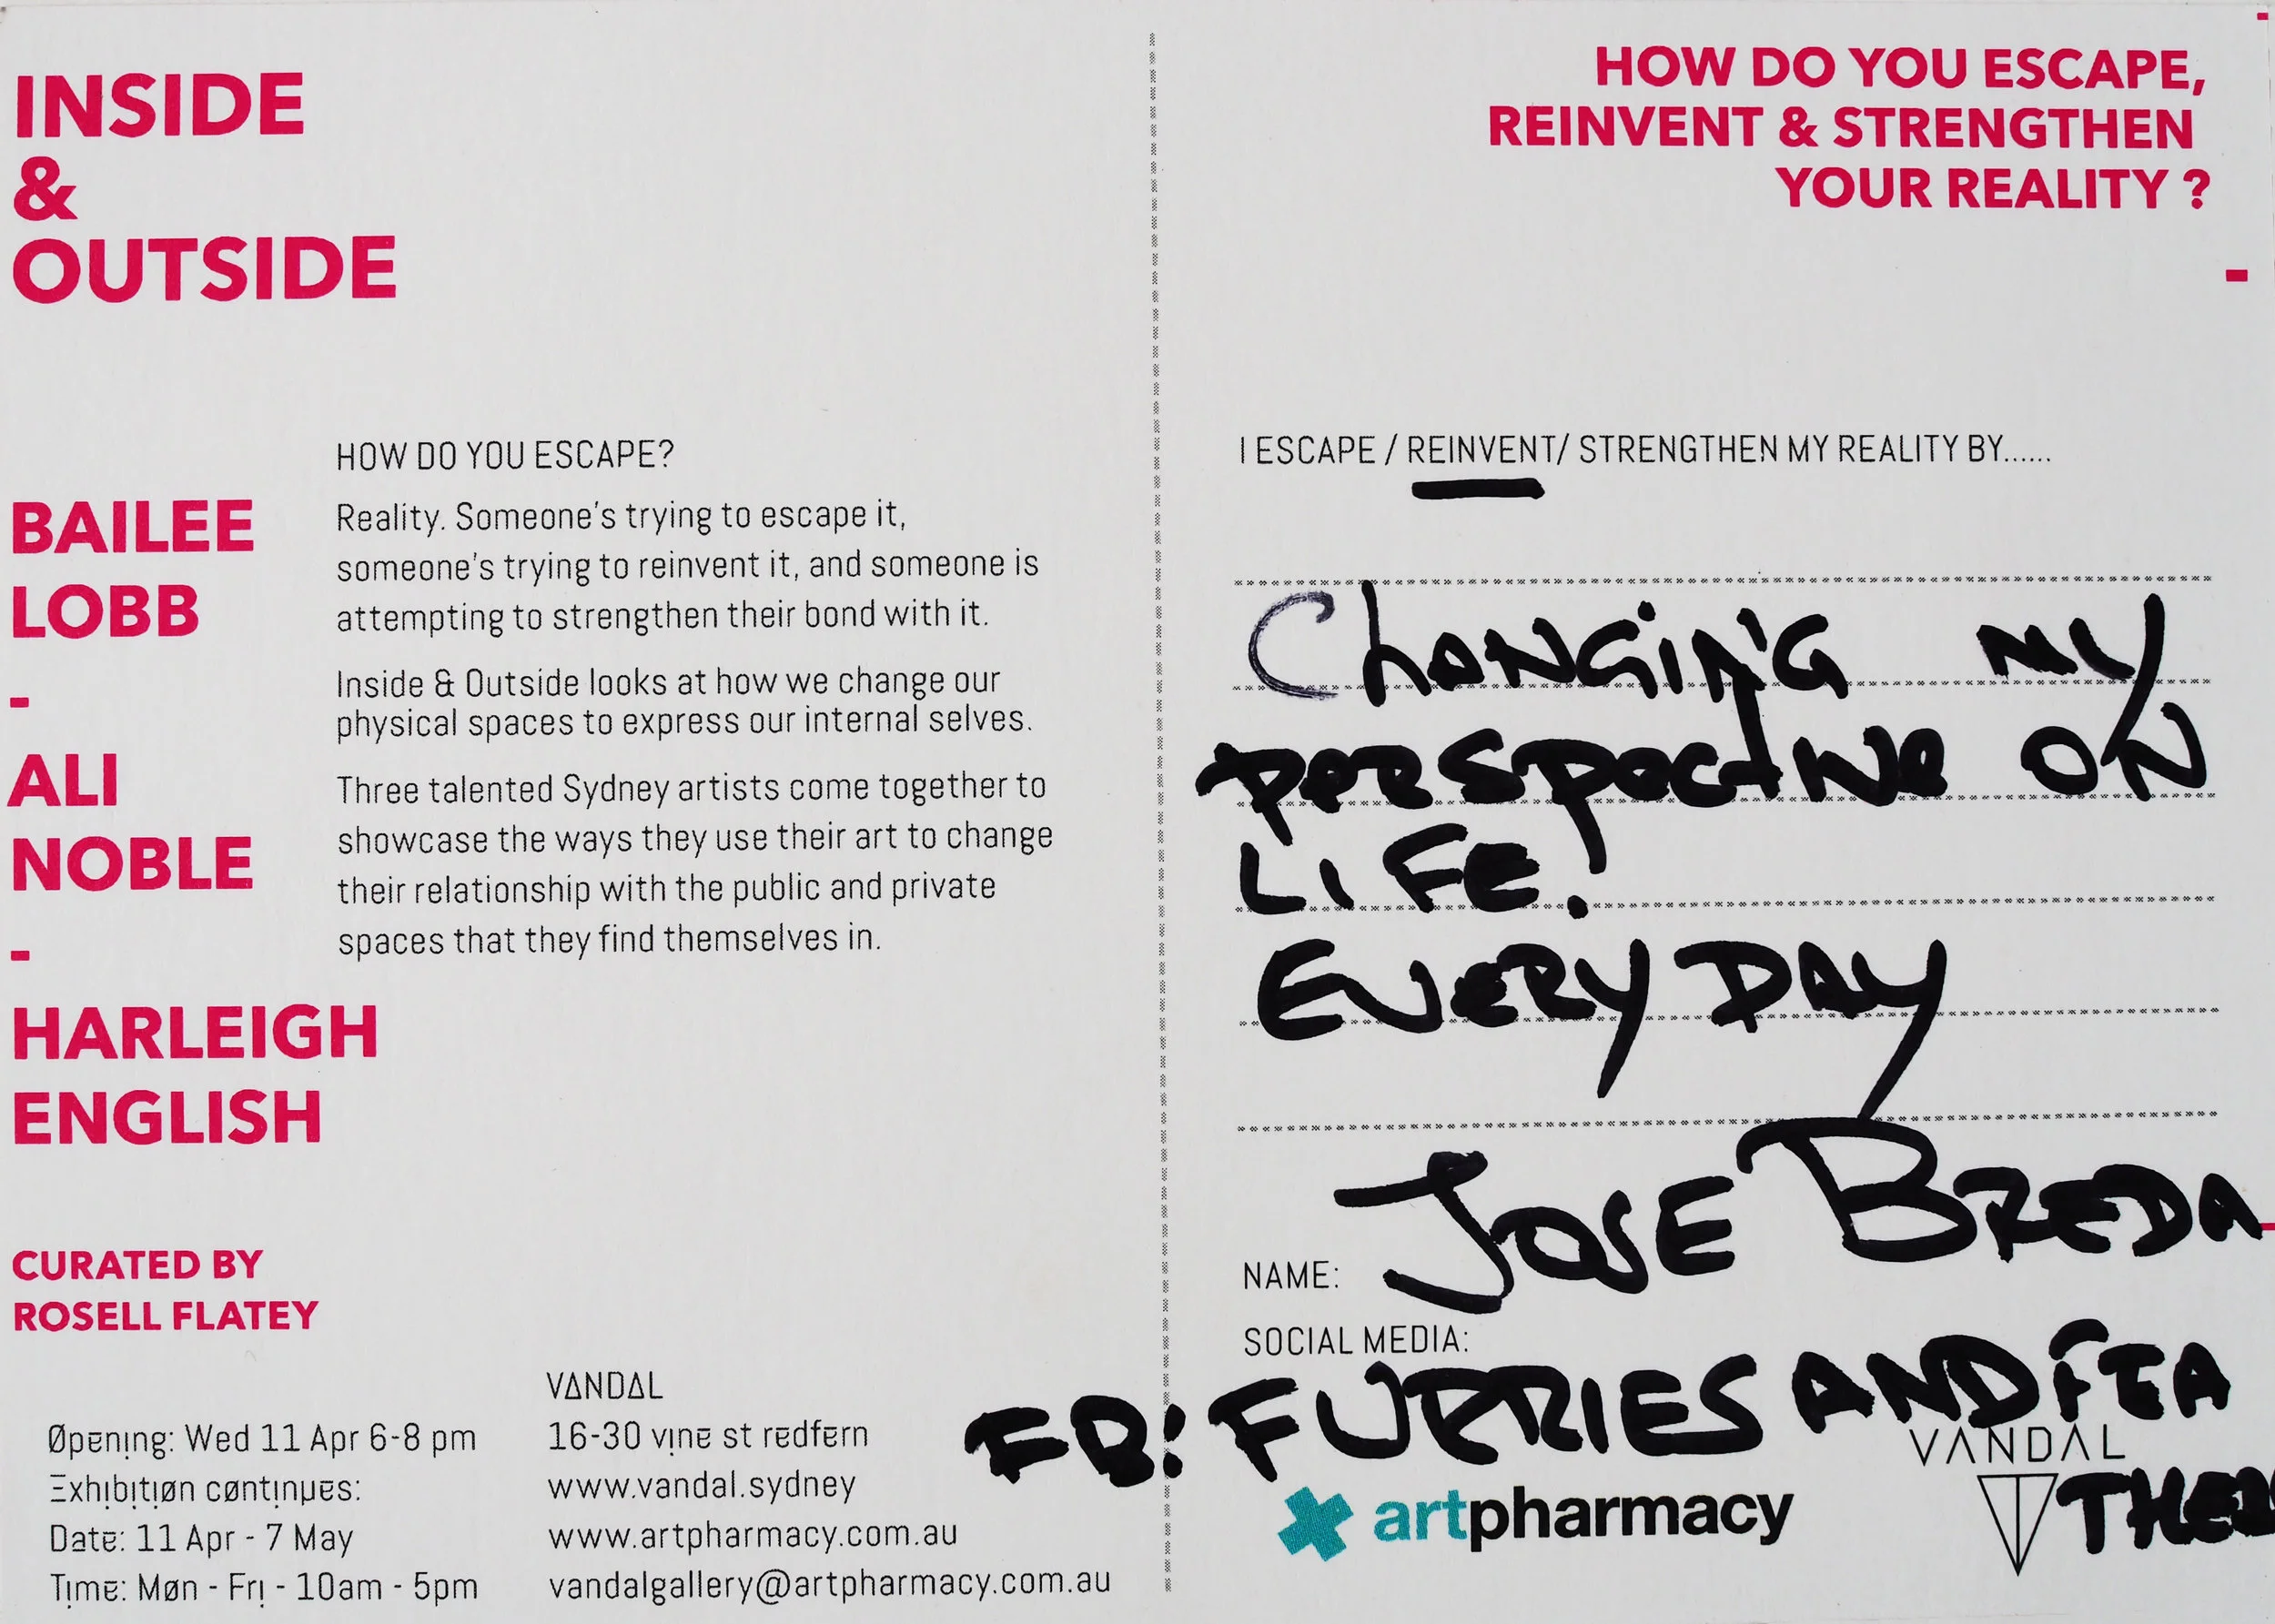 INSIDE
&
OUTSIDE
BAILEE
LOBB
-
ALI
NOBLE
-
HARLEIGH
ENGLISH
CURATED BY
ROSELL FLATEY
HOW DO YOU ESCAPE?
Reality. Someone's trying to escape it,
someone's trying to reinvent it, and someone is
attempting to strengthen their bond with it.
Inside & Outside looks at how we change our
physical spaces to express our internal selves.
Three talented Sydney artists come together to
showcase the ways they use their art to change
their relationship with the public and private
spaces that they find themselves in.
Øpening: Wed 11 Apr 6-8 pm
Exhibitiøn cøntinues:
Date: 11 Apr - 7 May
Time: Møn - Fri - 10am - 5pm
VANDAL
16-30 vine st redfern
www.vandal.sydney
www.artpharmacy.com.au
vandalgallery@artpharmacy.com.au
HOW DO YOU ESCAPE,
REINVENT & STRENGTHEN
YOUR REALITY ?
I ESCAPE / REINVENT/ STRENGTHEN MY REALITY BY......
CHANGING MY
PERSPECTIVE ON
LIFE!
EVERY DAY
NAME: JOSE BREDA
SOCIAL MEDIA:
FB: FURRIES AND FEA
THERS
artpharmacy
VANDAL